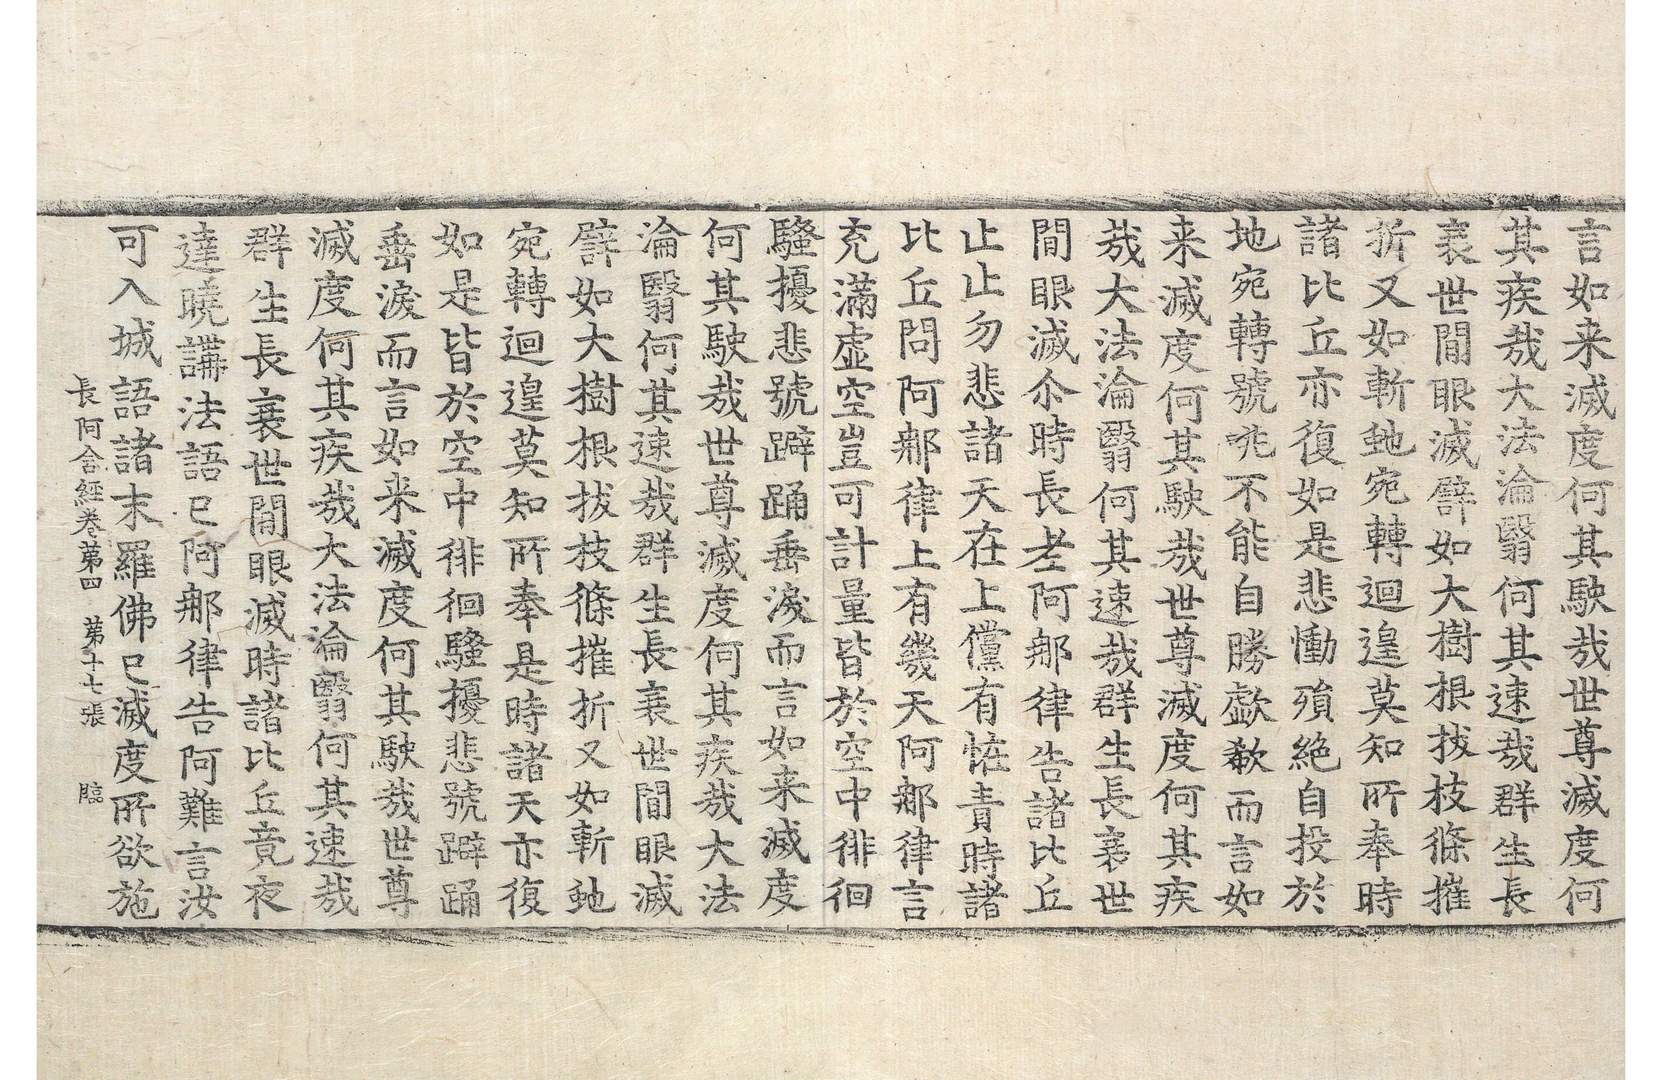 言如来滅度何其駛哉世尊滅度何
其疾哉大法淪翳何其速哉群生長
衰世間眼滅譬如大樹根拔枝條摧
折又如斬虵宛轉迴遑莫知所奉時
諸比丘亦復如是悲慟殞絶自投於
地宛轉號咷不能自勝歔欷而言如
来滅度何其駛哉世尊滅度何其疾
哉大法淪翳何其速哉群生長衰世
間眼滅尒時長老阿那律告諸比丘
止止勿悲諸天在上儻有恠責時諸
比丘問阿那律上有幾天阿那律言
充滿虛空豈可計量皆於空中徘徊
騷擾悲號躃踊垂淚而言如来滅度
何其駛哉世尊滅度何其疾哉大法
淪翳何其速哉群生長衰世間眼滅
譬如大樹根拔枝條摧折又如斬虵
宛轉迴遑莫知所奉是時諸天亦復
如是皆於空中徘徊騷擾悲號躃踊
垂淚而言如来滅度何其駛哉世尊
滅度何其疾哉大法淪翳何其速哉
群生長衰世間眼滅時諸比丘竟夜
達曉講法語已阿那律告阿難言汝
可入城語諸末羅佛已滅度所欲施
長阿含經卷第四 第十七張 臨